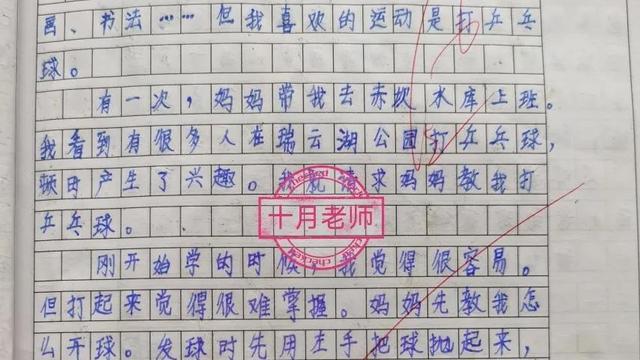 画、书法……但我喜欢的运动是打乒乓
球。
有一次，妈妈带我去赤坎水库上班。
我看到有很多人在瑞云湖公园打乒乓球，
顿时产生了兴趣。我就请求妈妈教我打
乒乓球。
checked
十月老师
checked
刚开始学的时候，我觉得很容易。
但打起来觉得很难掌握。妈妈先教我怎
么开球。发球时先用左手把球抛起来，